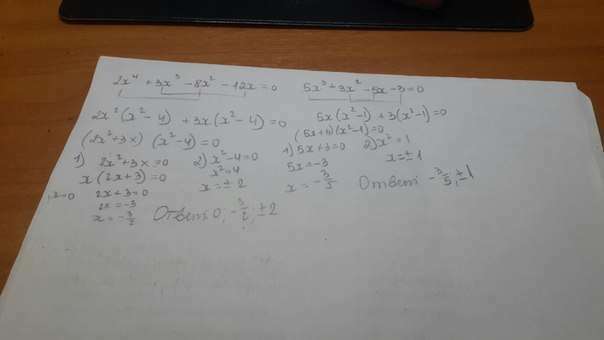 2x⁴ + 3x³ - 8x² - 12x = 0
2x²(x² - 4) + 3x(x² - 4) = 0
(2x² + 3x)(x² - 4) = 0
1) 2x² + 3x = 0
x(2x + 3) = 0
x = 0 2x + 3 = 0
2x = -3
x = -3/2
2) x² - 4 = 0
x² = 4
x = ± 2
Ответ 0; -3/2; ±2
5x³ + 3x² - 5x - 3 = 0
5x(x² - 1) + 3(x² - 1) = 0
(x² - 1) = 0
1) 5x + 3 = 0
5x = -3
x = -3/5
2) x² = 1
x = ± 1
Ответ -3/5; ±1